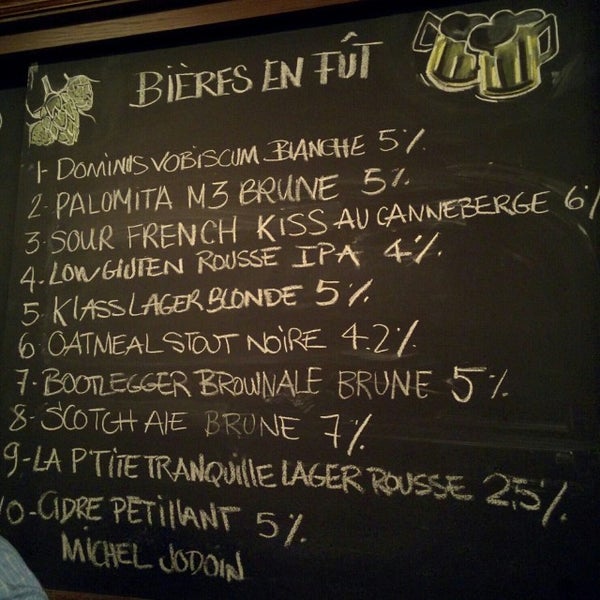 BIÈRES EN FÛT
1- DOMINUS VOBISCUM BLANCHE 5%
2- PALOMITA M3 BRUNE 5%
3- SOUR FRENCH KISS AU CANNEBERGE 6%
4- LOW GLUTEN ROUSSE IPA 4%
5- KLASS LAGER BLONDE 5%
6- OATMEAL STOUT NOIRE 4.2%
7- BOOTLEGGER BROWNALE BRUNE 5%
8- SCOTCH ALE BRUNE 7%
9- LA P'TITE TRANQUILLE LAGER ROUSSE 2,5%
10- CIDRE PETILLANT 5%
MICHEL JODOIN